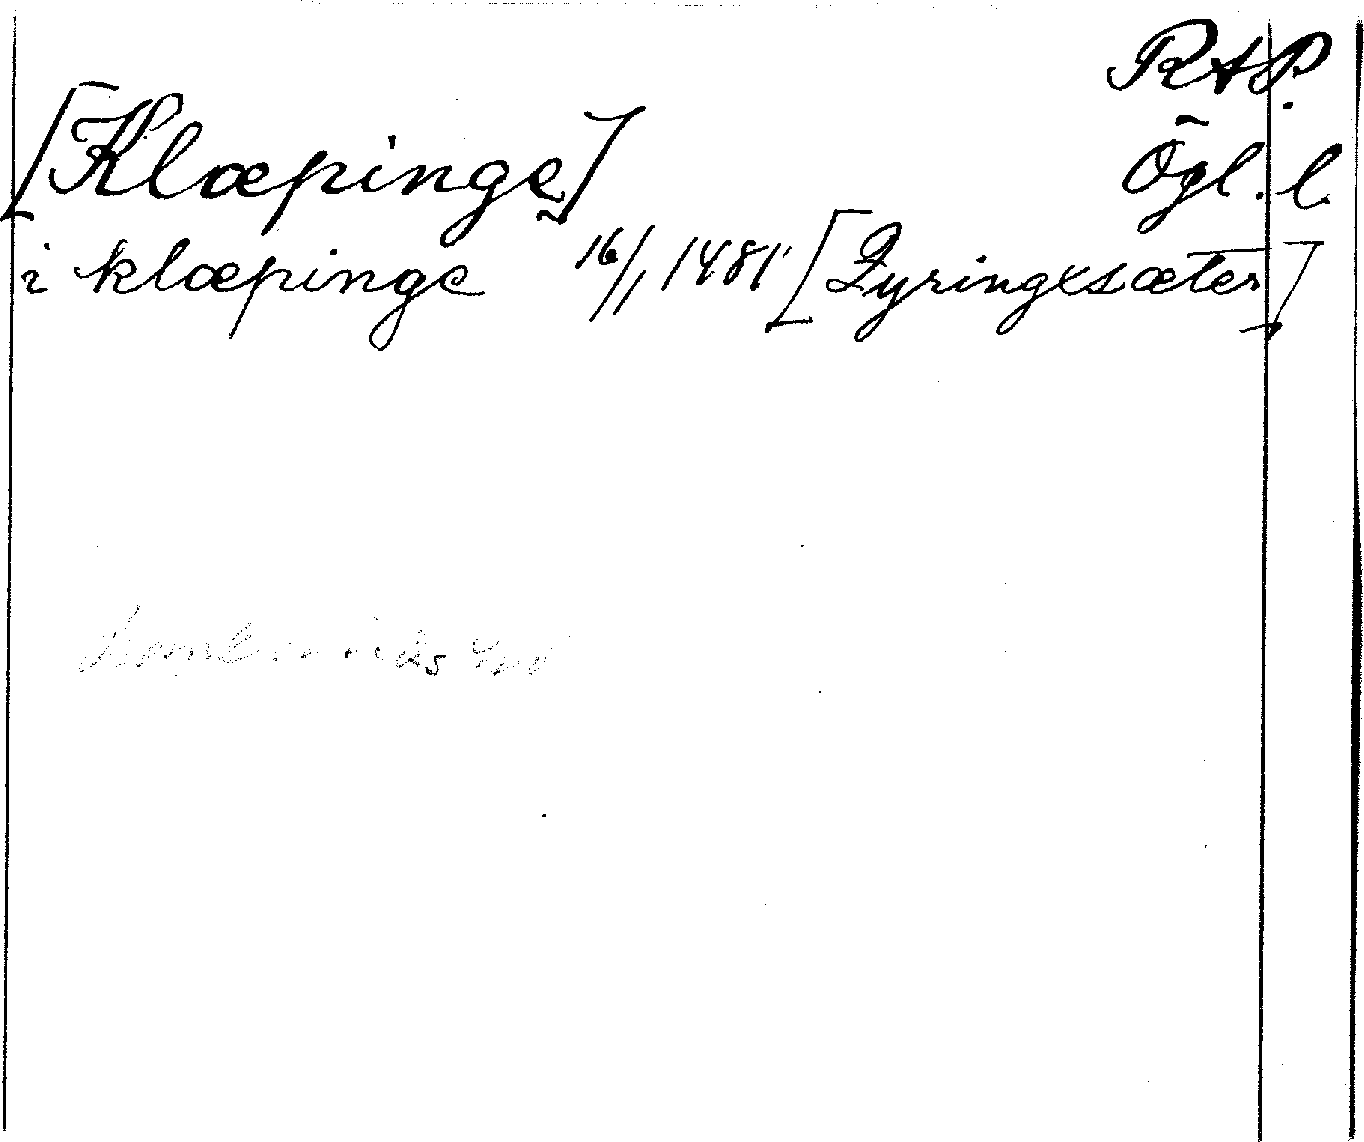 RAP.
[Klæpinge]
Ögl. l
i klæpinge 16/1 1481 [Zyringxsæter]